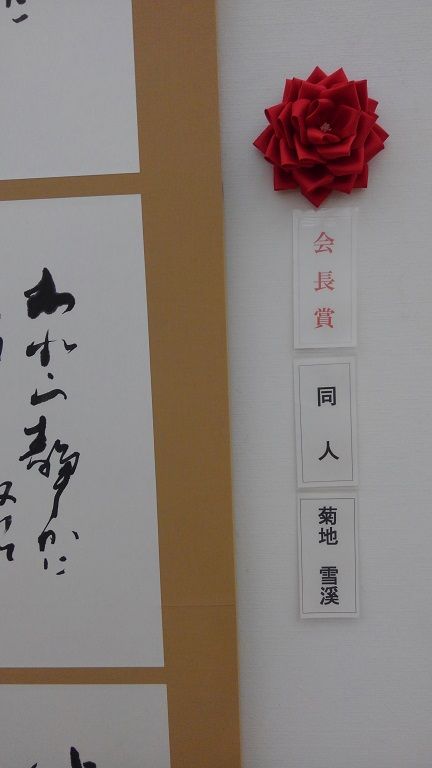 会長賞
同人
菊地 雪溪
われら静かに